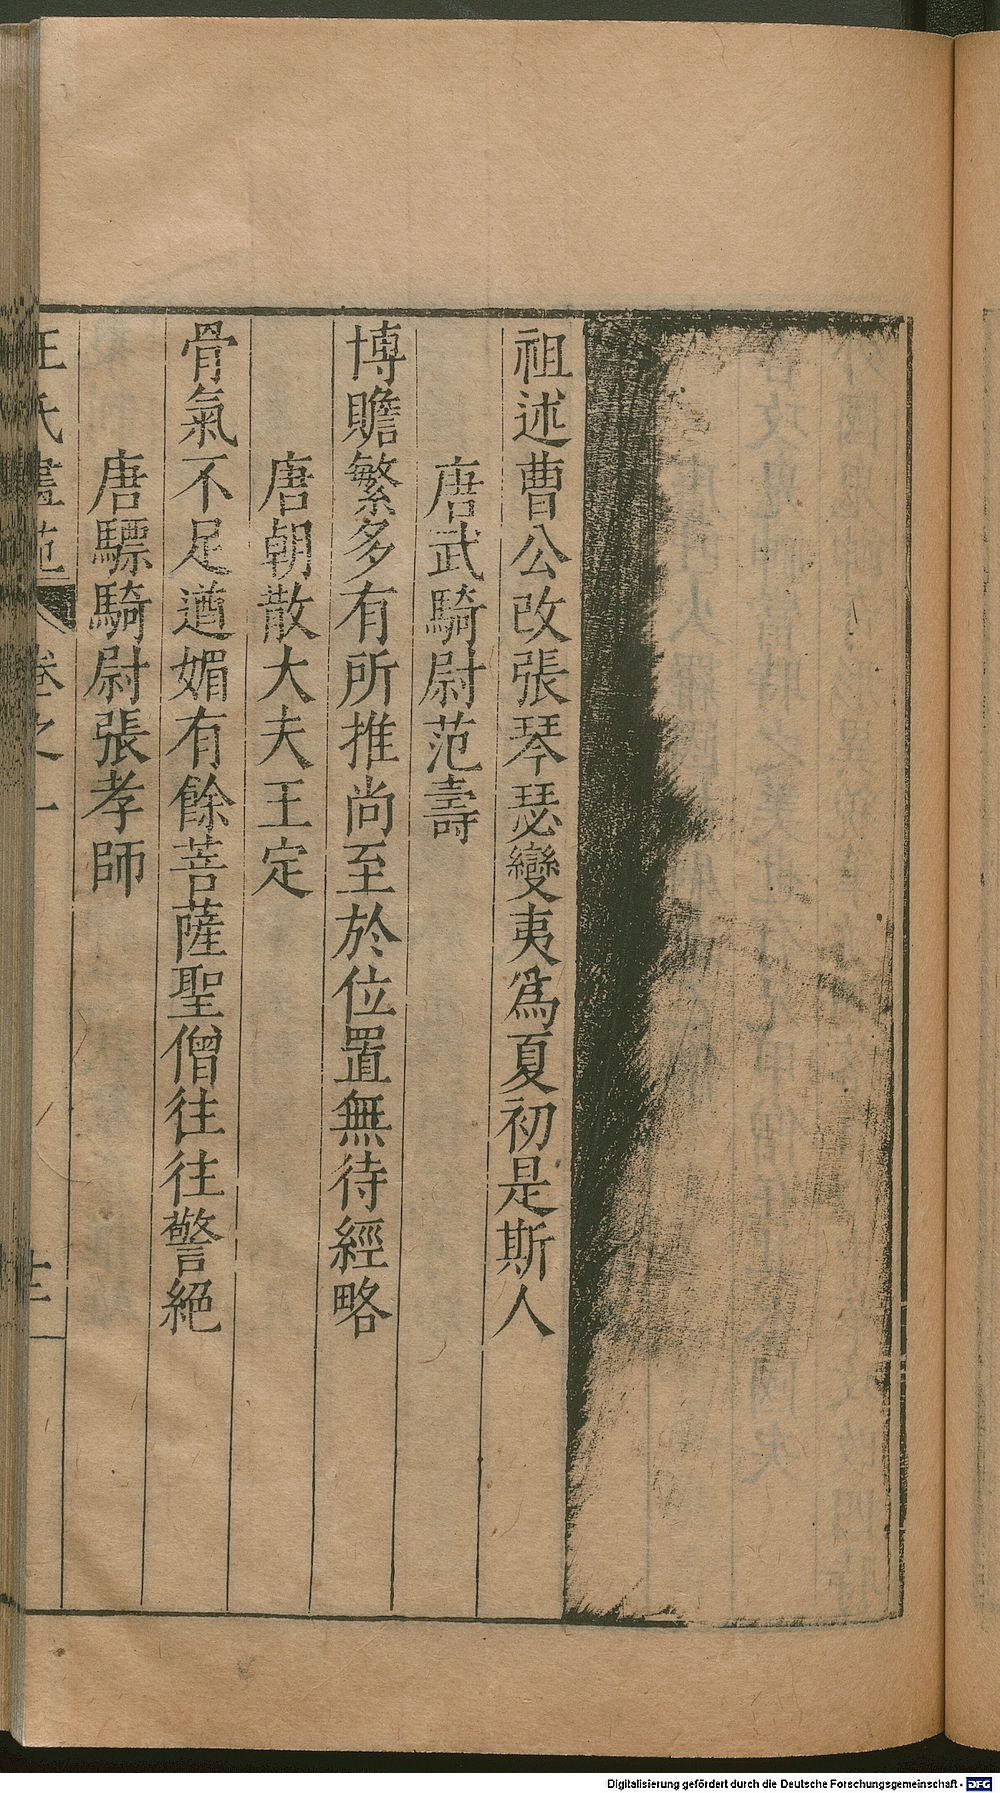 祖述曹公改張琴瑟變夷爲夏初是斯人
唐武騎尉范壽
博贍繁多有所推尚至於位置無待經略
唐朝散大夫王定
骨氣不足遒媚有餘菩薩聖僧往往警絕
唐驃騎尉張孝師
王氏畫苑 卷之一
Digitalisierung gefördert durch die Deutsche Forschungsgemeinschaft - DFG